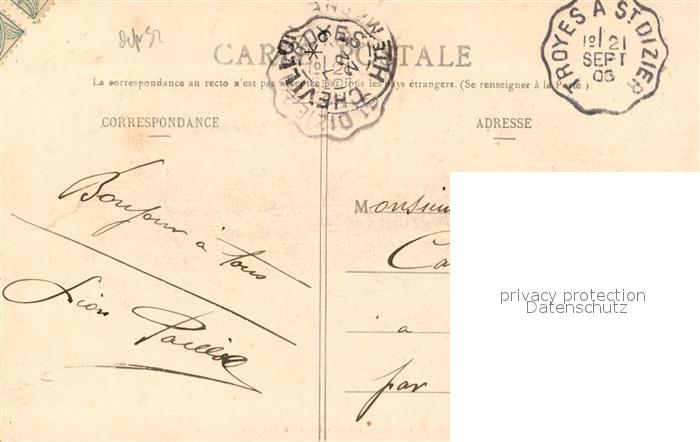 dep 52
CARTE POSTALE
La correspondance au recto n'est pas acceptée par tous les pays étrangers. (Se renseigner à la Poste)
TROYES A ST DIZIER
1º/ 21
SEPT
06
CORRESPONDANCE
ADRESSE
Bonjour à tous
Léon
Monsieur
Ca
a
par
privacy protection
Datenschutz